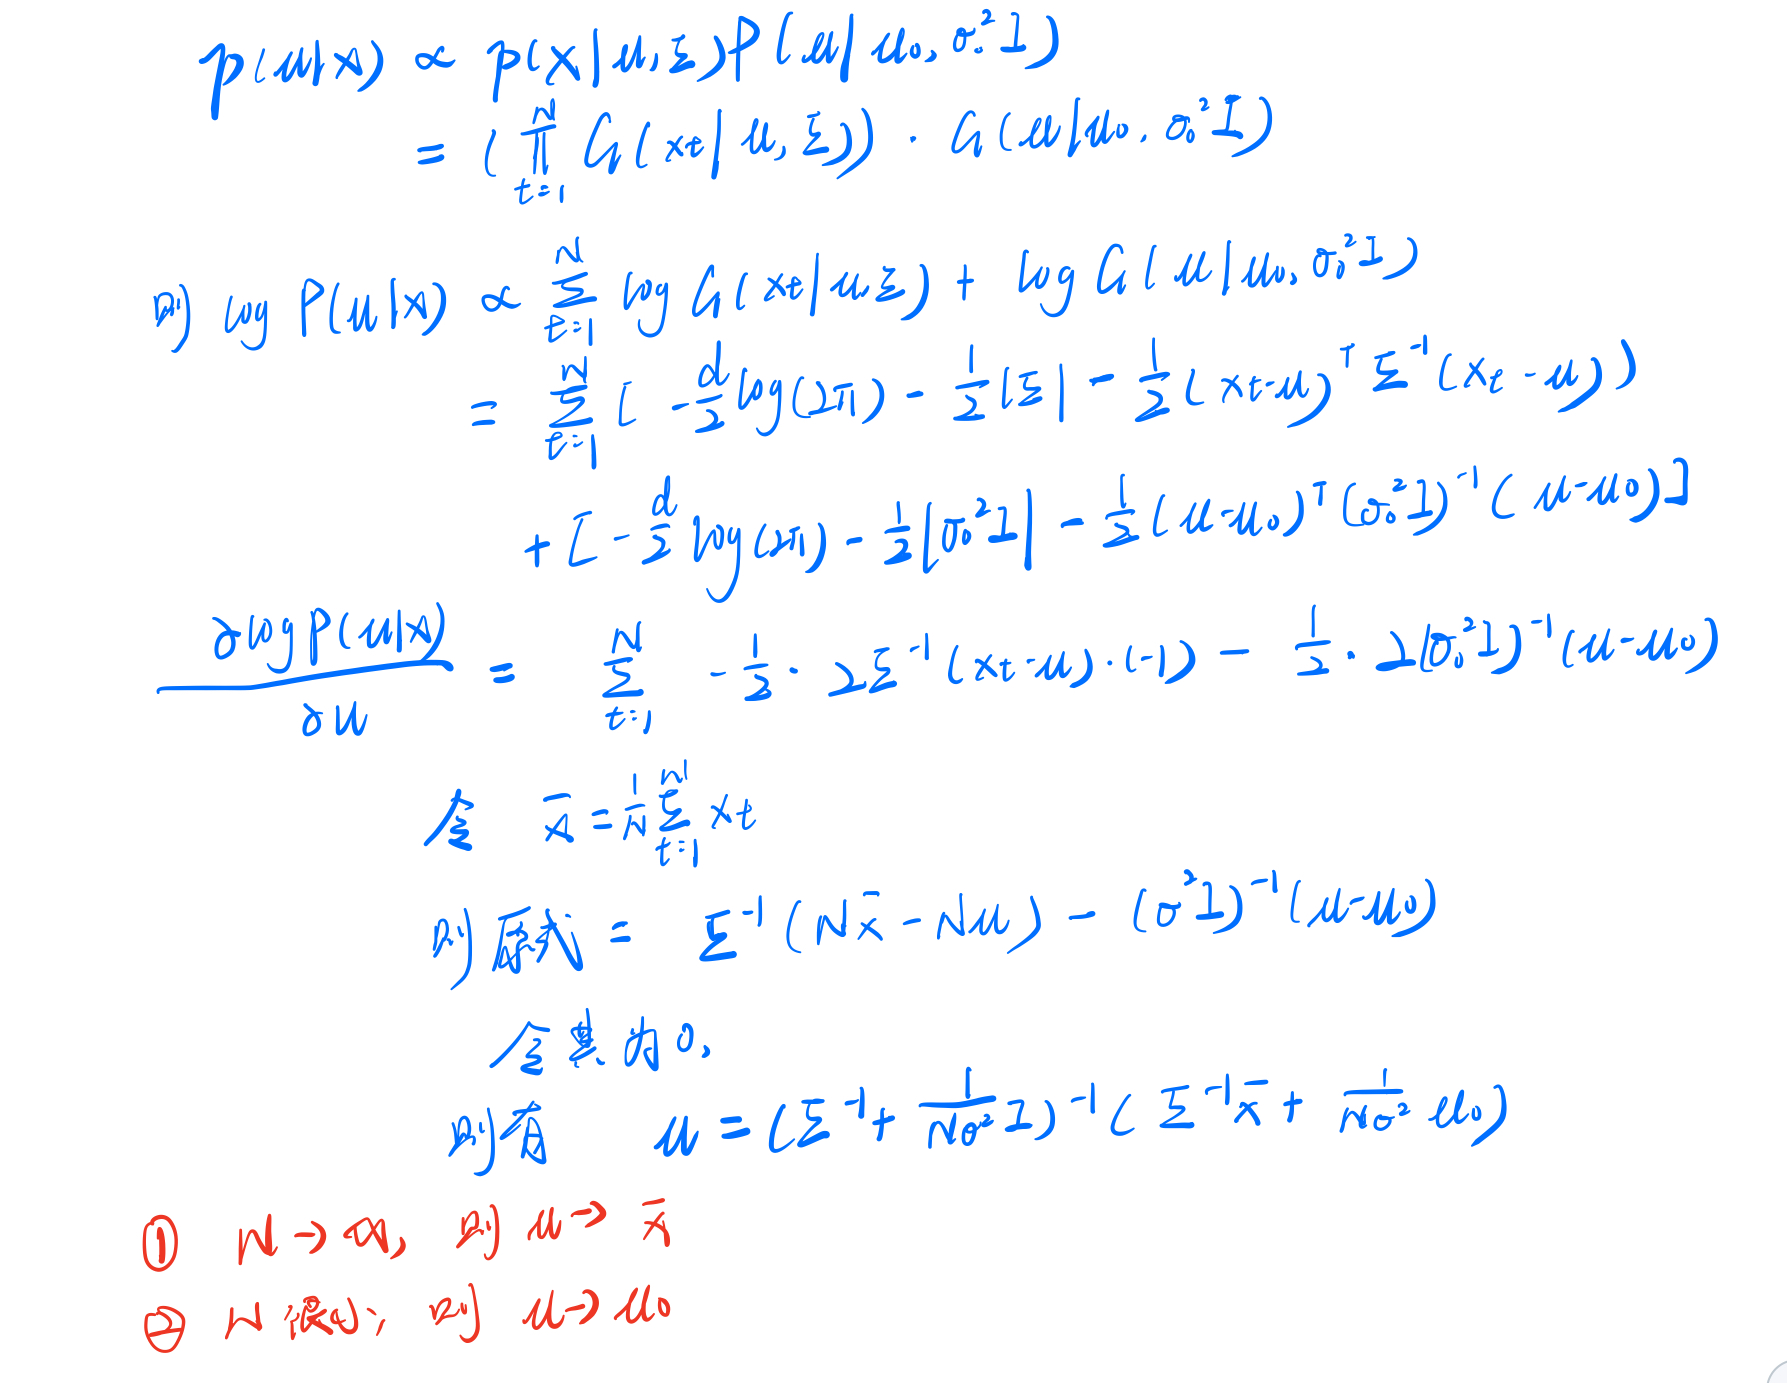 p(μ|x) ∝ p(x|μ,Σ)P(μ|μ₀,σ₀²I)
= (∏_{t=1}^{N} G(xₜ|μ,Σ)) · G(μ|μ₀,σ₀²I)
则 log P(μ|x) ∝ Σ_{t=1}^{N} log G(xₜ|μ,Σ) + log G(μ|μ₀,σ₀²I)
= Σ_{t=1}^{N} [ -d/2 log(2π) - 1/2 |Σ| - 1/2 (xₜ-μ)ᵀ Σ⁻¹ (xₜ-μ) )
+ [ -d/2 log(2π) - 1/2 |σ₀²I| - 1/2 (μ-μ₀)ᵀ (σ₀²I)⁻¹ (μ-μ₀) ]
∂log P(μ|x)/∂μ = Σ_{t=1}^{N} -1/2 · 2Σ⁻¹(xₜ-μ)·(-1) - 1/2 · 2(σ₀²I)⁻¹(μ-μ₀)
令 x̄ = 1/N Σ_{t=1}^{N} xₜ
则原式 = Σ⁻¹(Nx̄ - Nμ) - (σ²I)⁻¹(μ-μ₀)
令其为0,
则有 μ = (Σ⁻¹ + 1/(Nσ²) I)⁻¹ ( Σ⁻¹x̄ + 1/(Nσ²) μ₀)
① N→∞, 则 μ→ x̄
② N很小, 则 μ→μ₀